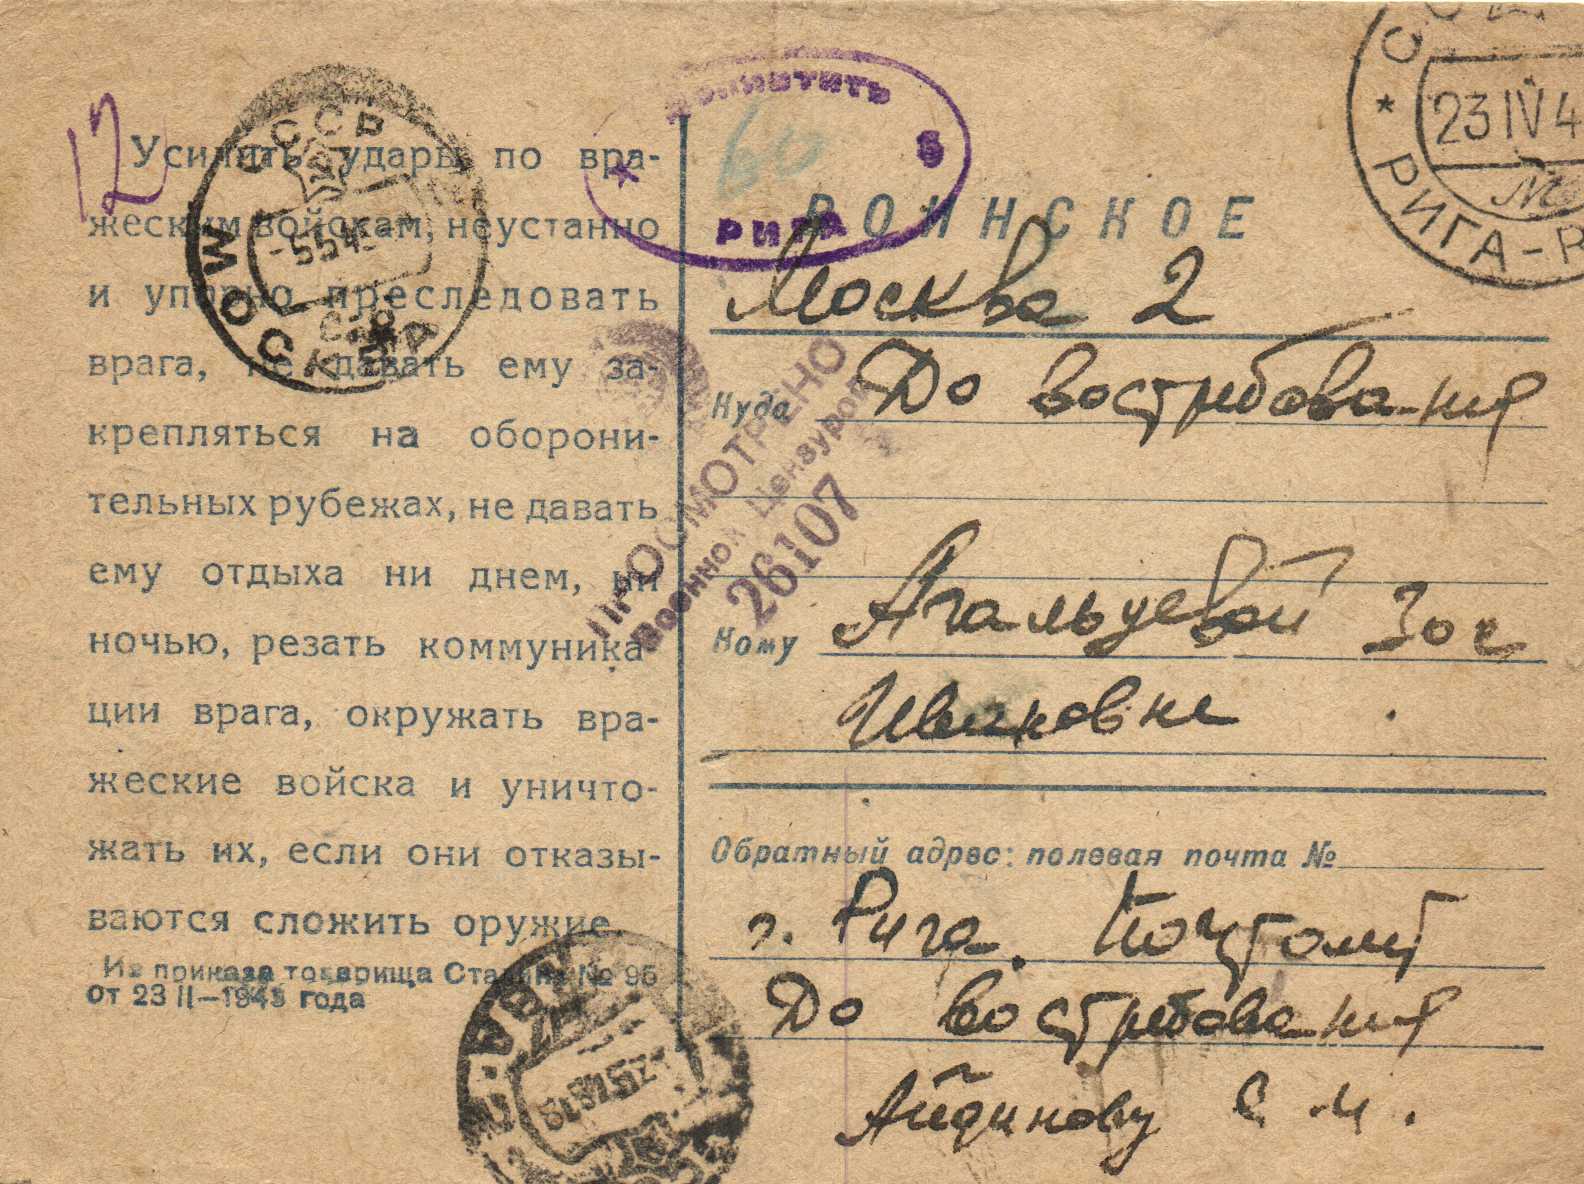 12
Усилить удары по вра-
жеским войскам, неустанно
и упорно преследовать
врага, не давать ему за-
крепляться на оборони-
тельных рубежах, не давать
ему отдыха ни днем, ни
ночью, резать коммуника
ции врага, окружать вра-
жеские войска и уничто-
жать их, если они отказы-
ваются сложить оружие.
Из приказа товарища Сталина № 95
от 23 II—1943 года
СССР
МОСКВА
РИГА
5
60
ВОИНСКОЕ
Москва 2
Куда До востребования
Кому Агальцевой Зое
Ивановне
Обратный адрес: полевая почта №
г. Рига. Почтамт
До востребования
Айдинову С. И.
ПРОСМОТРЕНО
Военной Цензурой
26107
23 IV 4
РИГА-Р